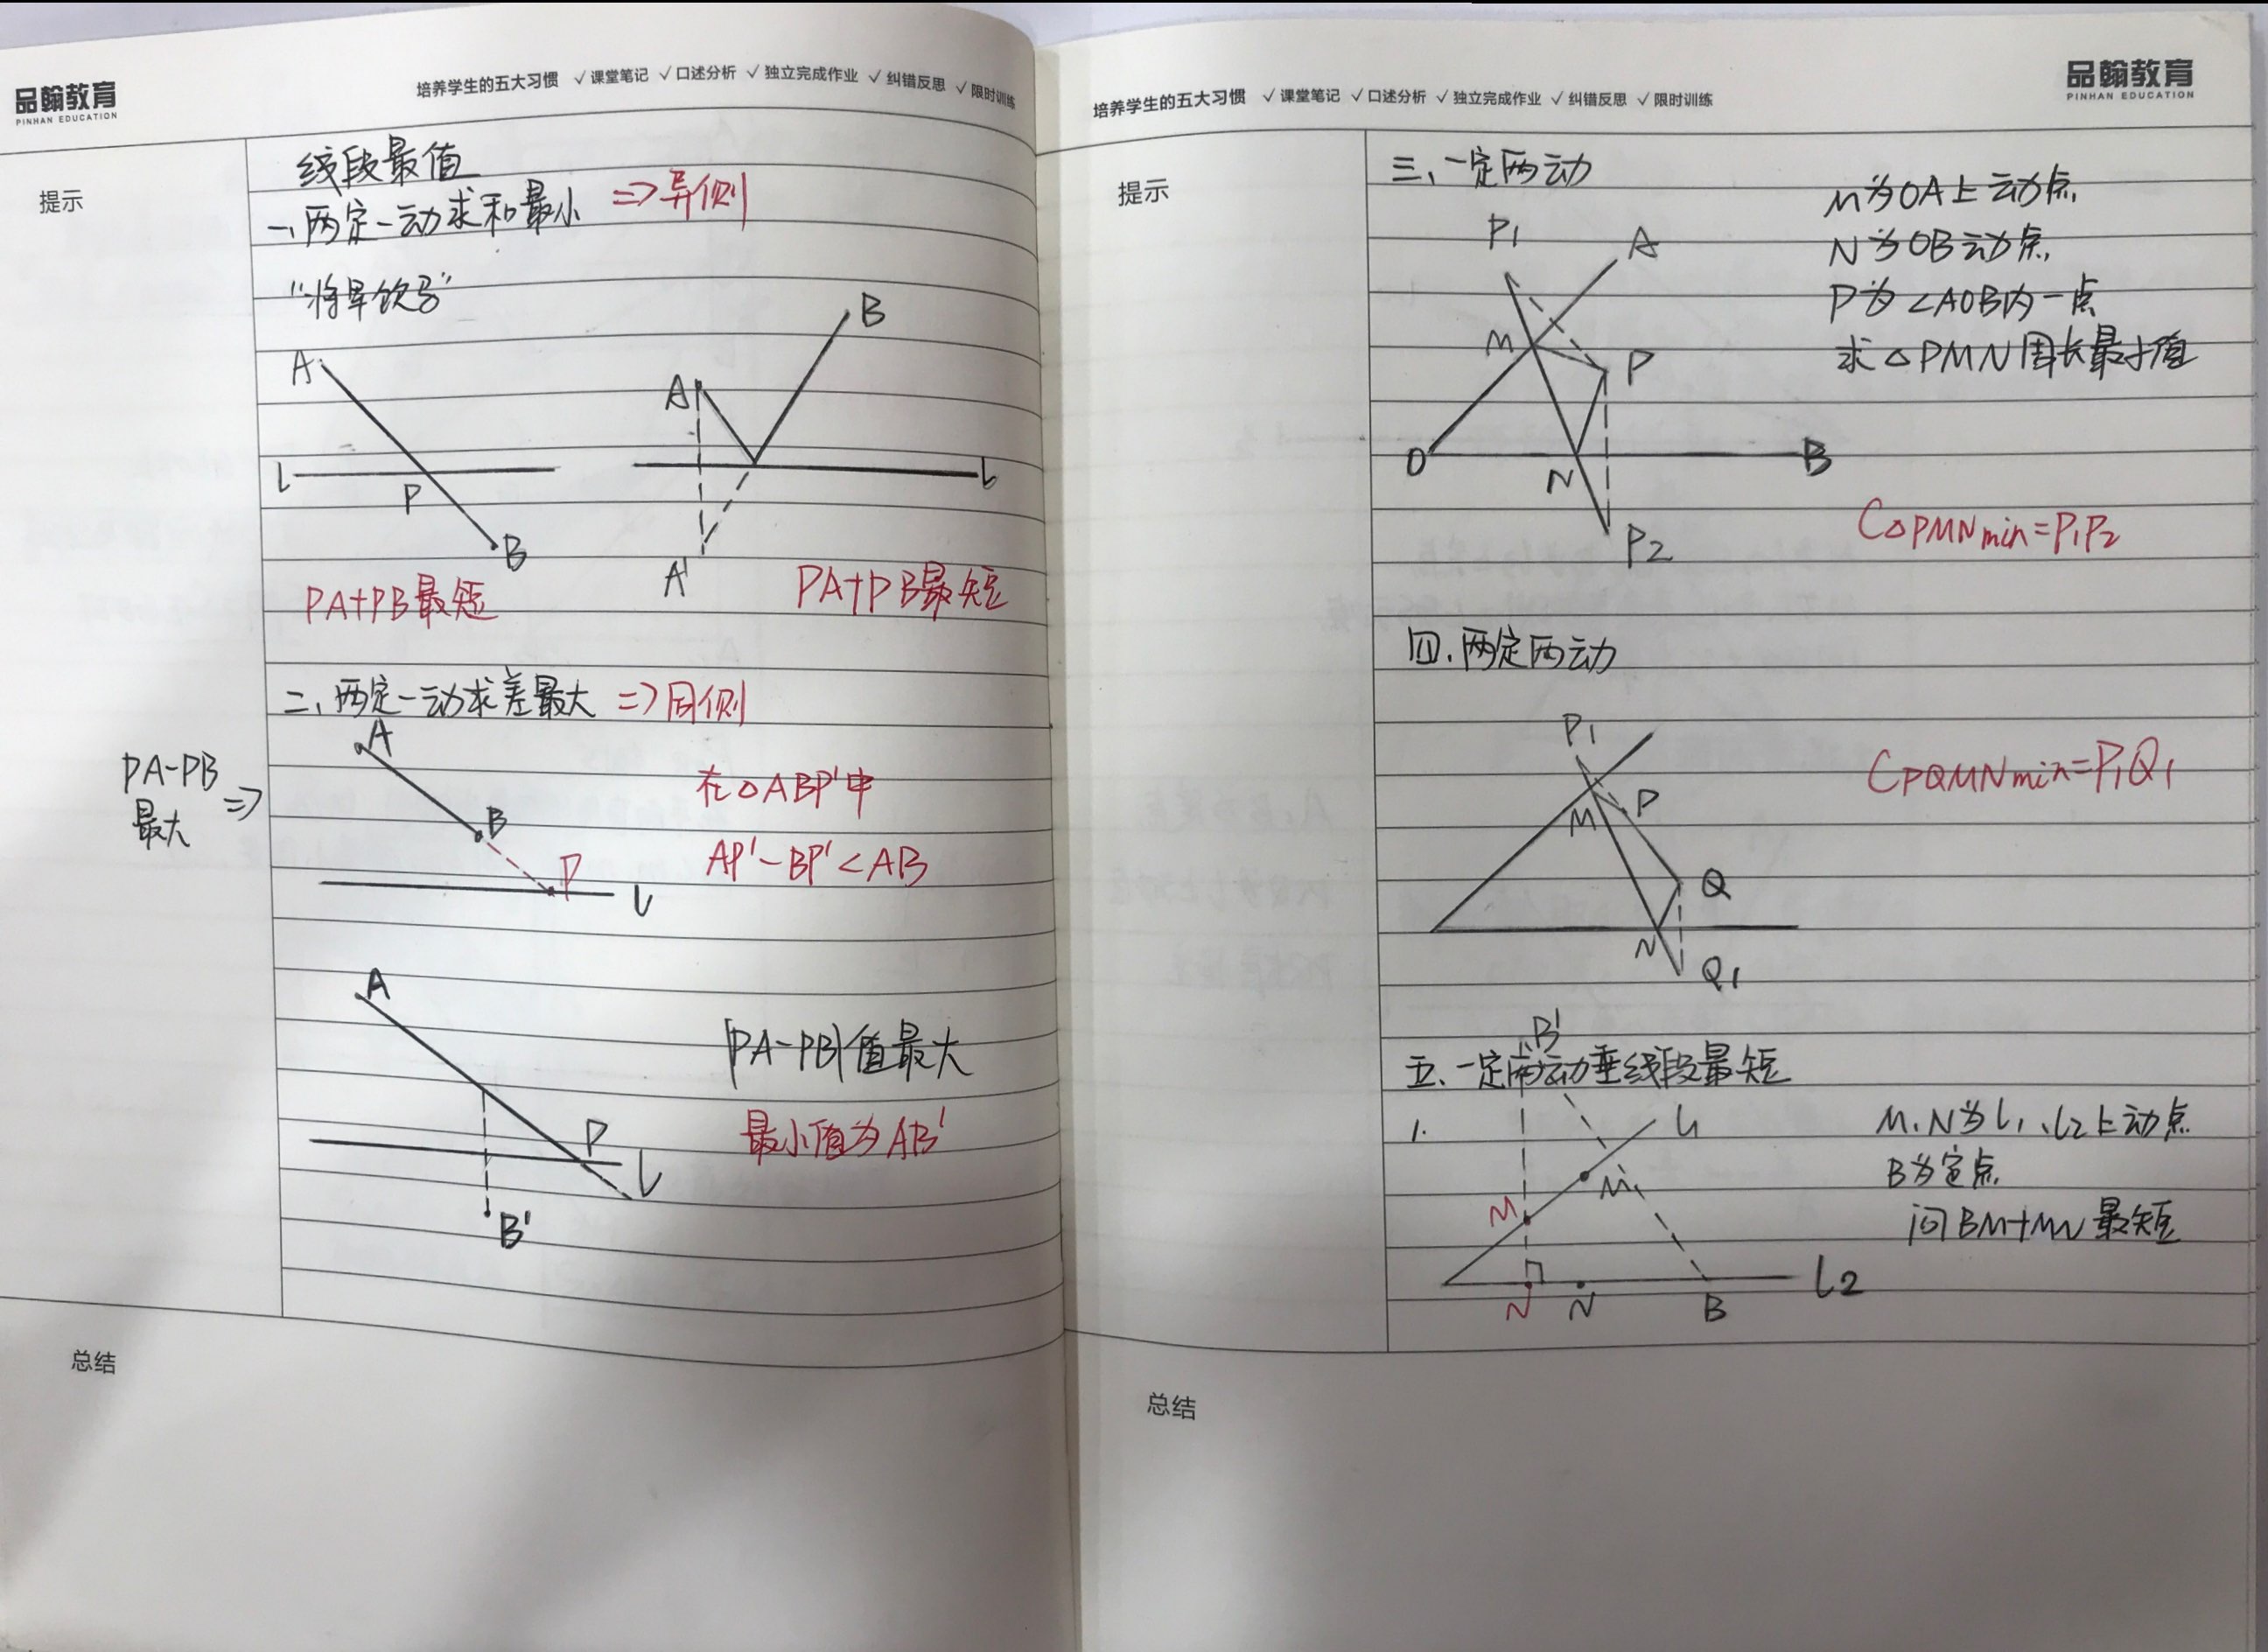 品翰教育
PINHAN EDUCATION
培养学生的五大习惯 √课堂笔记 √口述分析 √独立完成作业 √纠错反思 √限时训练
提示
线段最值
一、两定一动求和最小 => 异侧
“将军饮马”
A
l
P
B
PA+PB最短
A
B
l
A'
PA+PB最短
二、两定一动求差最大 => 同侧
PA-PB
最大 =>
A
B
P
l
在△ABP'中
AP'-BP'<AB
A
P
l
B'
|PA-PB|值最大
最小值为AB'
总结
培养学生的五大习惯 √课堂笔记 √口述分析 √独立完成作业 √纠错反思 √限时训练
品翰教育
PINHAN EDUCATION
提示
三、一定两动
M为OA上动点
N为OB动点
P为∠AOB内一点
求△PMN周长最小值
P1
A
M
P
O
N
B
P2
C△PMNmin=P1P2
四.两定两动
P1
P
M
Q
N
Q1
CPQMNmin=P1Q1
B'
五、一定两动垂线段最短
1.
l1
M
M
N
N
B
l2
M、N为l1、l2上动点
B为定点
问BM+MN最短
总结